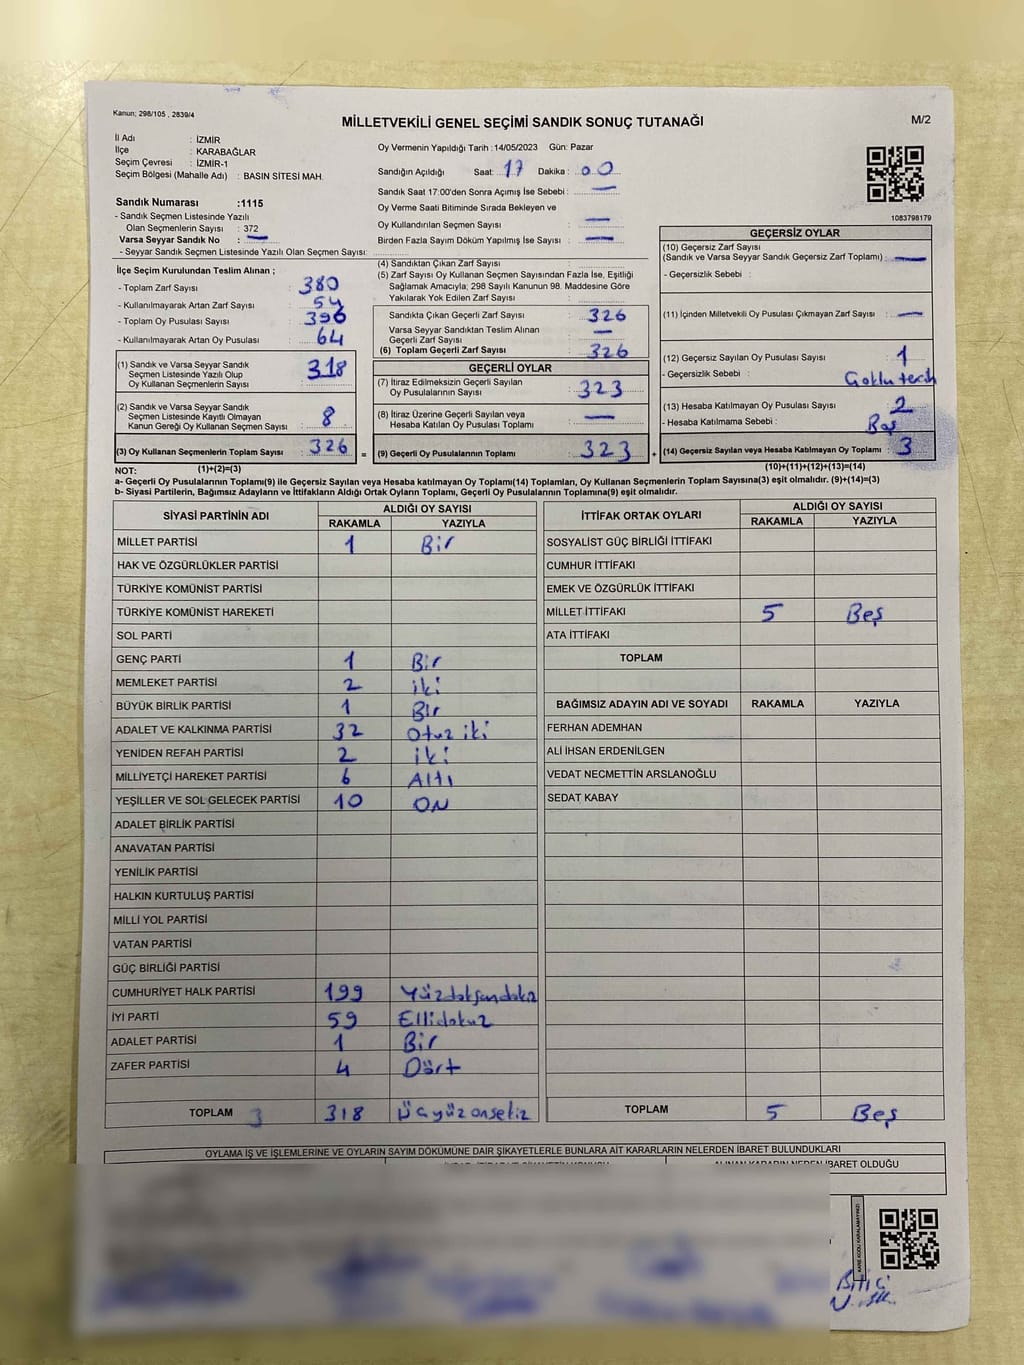 Kanun; 298/105 , 2839/4
MİLLETVEKİLİ GENEL SEÇİMİ SANDIK SONUÇ TUTANAĞI
M/2
İl Adı : İZMİR
İlçe : KARABAĞLAR
Seçim Çevresi : İZMİR-1
Seçim Bölgesi (Mahalle Adı) : BASIN SİTESİ MAH.
Oy Vermenin Yapıldığı Tarih :14/05/2023 Gün: Pazar
Sandığın Açıldığı Saat: 17 Dakika : 00
Sandık Saat 17:00'den Sonra Açımış İse Sebebi : —
Oy Verme Saati Bitiminde Sırada Bekleyen ve
Oy Kullandırılan Seçmen Sayısı : —
Birden Fazla Sayım Döküm Yapılmış İse Sayısı : —
Sandık Numarası :1115
- Sandık Seçmen Listesinde Yazılı
Olan Seçmenlerin Sayısı : 372
Varsa Seyyar Sandık No : —
- Seyyar Sandık Seçmen Listesinde Yazılı Olan Seçmen Sayısı:
1083798179
İlçe Seçim Kurulundan Teslim Alınan ;
- Toplam Zarf Sayısı : 380
- Kullanılmayarak Artan Zarf Sayısı : 54
- Toplam Oy Pusulası Sayısı : 390
- Kullanılmayarak Artan Oy Pusulası : 64
(1) Sandık ve Varsa Seyyar Sandık
Seçmen Listesinde Yazılı Olup
Oy Kullanan Seçmenlerin Sayısı : 318
(2) Sandık ve Varsa Seyyar Sandık
Seçmen Listesinde Kayıtlı Olmayan
Kanun Gereği Oy Kullanan Seçmen Sayısı : 8
(3) Oy Kullanan Seçmenlerin Toplam Sayısı : 326 =
(4) Sandıktan Çıkan Zarf Sayısı :
(5) Zarf Sayısı Oy Kullanan Seçmen Sayısından Fazla İse, Eşitliği
Sağlamak Amacıyla; 298 Sayılı Kanunun 98. Maddesine Göre
Yakılarak Yok Edilen Zarf Sayısı :
Sandıkta Çıkan Geçerli Zarf Sayısı : 326
Varsa Seyyar Sandıktan Teslim Alınan
Geçerli Zarf Sayısı : —
(6) Toplam Geçerli Zarf Sayısı : 326
GEÇERLİ OYLAR
(7) İtiraz Edilmeksizin Geçerli Sayılan
Oy Pusulalarının Sayısı : 323
(8) İtiraz Üzerine Geçerli Sayılan veya
Hesaba Katılan Oy Pusulası Toplamı : —
(9) Geçerli Oy Pusulalarının Toplamı : 323 +
GEÇERSİZ OYLAR
(10) Geçersiz Zarf Sayısı
(Sandık ve Varsa Seyyar Sandık Geçersiz Zarf Toplamı) : —
- Geçersizlik Sebebi :
(11) İçinden Milletvekili Oy Pusulası Çıkmayan Zarf Sayısı : —
(12) Geçersiz Sayılan Oy Pusulası Sayısı : 1
- Geçersizlik Sebebi : Çoklu tercih
(13) Hesaba Katılmayan Oy Pusulası Sayısı : 2
- Hesaba Katılmama Sebebi : Boş
(14) Geçersiz Sayılan veya Hesaba Katılmayan Oy Toplamı : 3
NOT: (1)+(2)=(3) (10)+(11)+(12)+(13)=(14)
a- Geçerli Oy Pusulalarının Toplamı(9) ile Geçersiz Sayılan veya Hesaba katılmayan Oy Toplamı(14) Toplamları, Oy Kullanan Seçmenlerin Toplam Sayısına(3) eşit olmalıdır. (9)+(14)=(3)
b- Siyasi Partilerin, Bağımsız Adayların ve İttifakların Aldığı Ortak Oyların Toplamı, Geçerli Oy Pusulalarının Toplamına(9) eşit olmalıdır.
SİYASİ PARTİNİN ADI ALDIĞI OY SAYISI
RAKAMLA YAZIYLA
MİLLET PARTİSİ 1 Bir
HAK VE ÖZGÜRLÜKLER PARTİSİ
TÜRKİYE KOMÜNİST PARTİSİ
TÜRKİYE KOMÜNİST HAREKETİ
SOL PARTİ
GENÇ PARTİ 1 Bir
MEMLEKET PARTİSİ 2 iki
BÜYÜK BİRLİK PARTİSİ 1 Bir
ADALET VE KALKINMA PARTİSİ 32 Otuz iki
YENİDEN REFAH PARTİSİ 2 iki
MİLLİYETÇİ HAREKET PARTİSİ 6 Altı
YEŞİLLER VE SOL GELECEK PARTİSİ 10 ON
ADALET BİRLİK PARTİSİ
ANAVATAN PARTİSİ
YENİLİK PARTİSİ
HALKIN KURTULUŞ PARTİSİ
MİLLİ YOL PARTİSİ
VATAN PARTİSİ
GÜÇ BİRLİĞİ PARTİSİ
CUMHURİYET HALK PARTİSİ 199 Yüzdoksandokuz
İYİ PARTİ 59 Ellidokuz
ADALET PARTİSİ 1 Bir
ZAFER PARTİSİ 4 Dört
TOPLAM 3 318 Üçyüzonsekiz
İTTİFAK ORTAK OYLARI ALDIĞI OY SAYISI
RAKAMLA YAZIYLA
SOSYALİST GÜÇ BİRLİĞİ İTTİFAKI
CUMHUR İTTİFAKI
EMEK VE ÖZGÜRLÜK İTTİFAKI
MİLLET İTTİFAKI 5 Beş
ATA İTTİFAKI
TOPLAM
BAĞIMSIZ ADAYIN ADI VE SOYADI RAKAMLA YAZIYLA
FERHAN ADEMHAN
ALİ İHSAN ERDENİLGEN
VEDAT NECMETTİN ARSLANOĞLU
SEDAT KABAY
TOPLAM 5 Beş
OYLAMA İŞ VE İŞLEMLERİNE VE OYLARIN SAYIM DÖKÜMÜNE DAİR ŞİKAYETLERLE BUNLARA AİT KARARLARIN NELERDEN İBARET BULUNDUKLARI
ALINAN KARARIN NEDEN İBARET OLDUĞU
KARE KODU KARALAMAYINIZ!